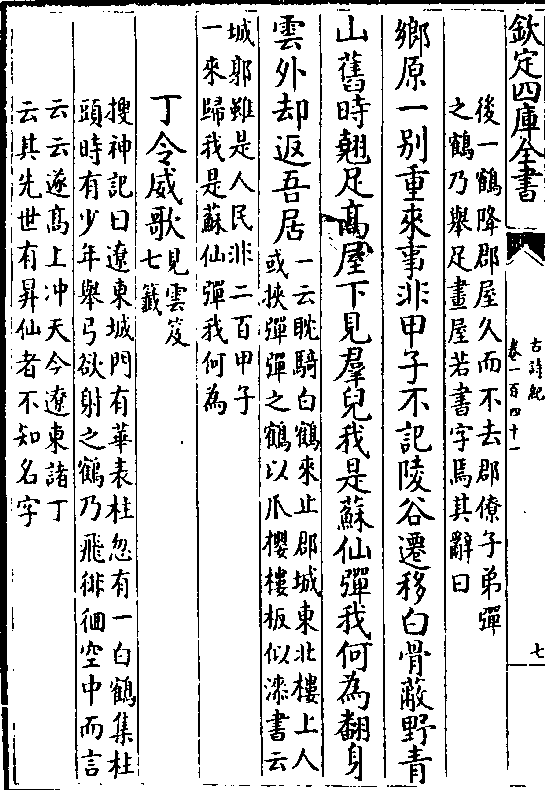 欽定四庫全書
古詩紀
卷一百四十一
七
後一鶴降郡屋久而不去郡僚子弟彈
之鶴乃舉足畫屋若書字焉其辭曰
鄉原一别重來事非甲子不記陵谷遷移白骨蔽野青
山舊時翹足高屋下見羣兒我是蘇仙彈我何為翻身
雲外却返吾居
一云耽騎白鶴來止郡城東北樓上人
或挾彈彈之鶴以爪攫樓板似漆書云
城郭雖是人民非二百甲子
一來歸我是蘇仙彈我何為
丁令威歌
見雲笈
七籤
搜神記曰遼東城門有華表柱忽有一白鶴集柱
頭時有少年舉弓欲射之鶴乃飛徘徊空中而言
云云遂髙上冲天今遼東諸丁
云其先世有昇仙者不知名字